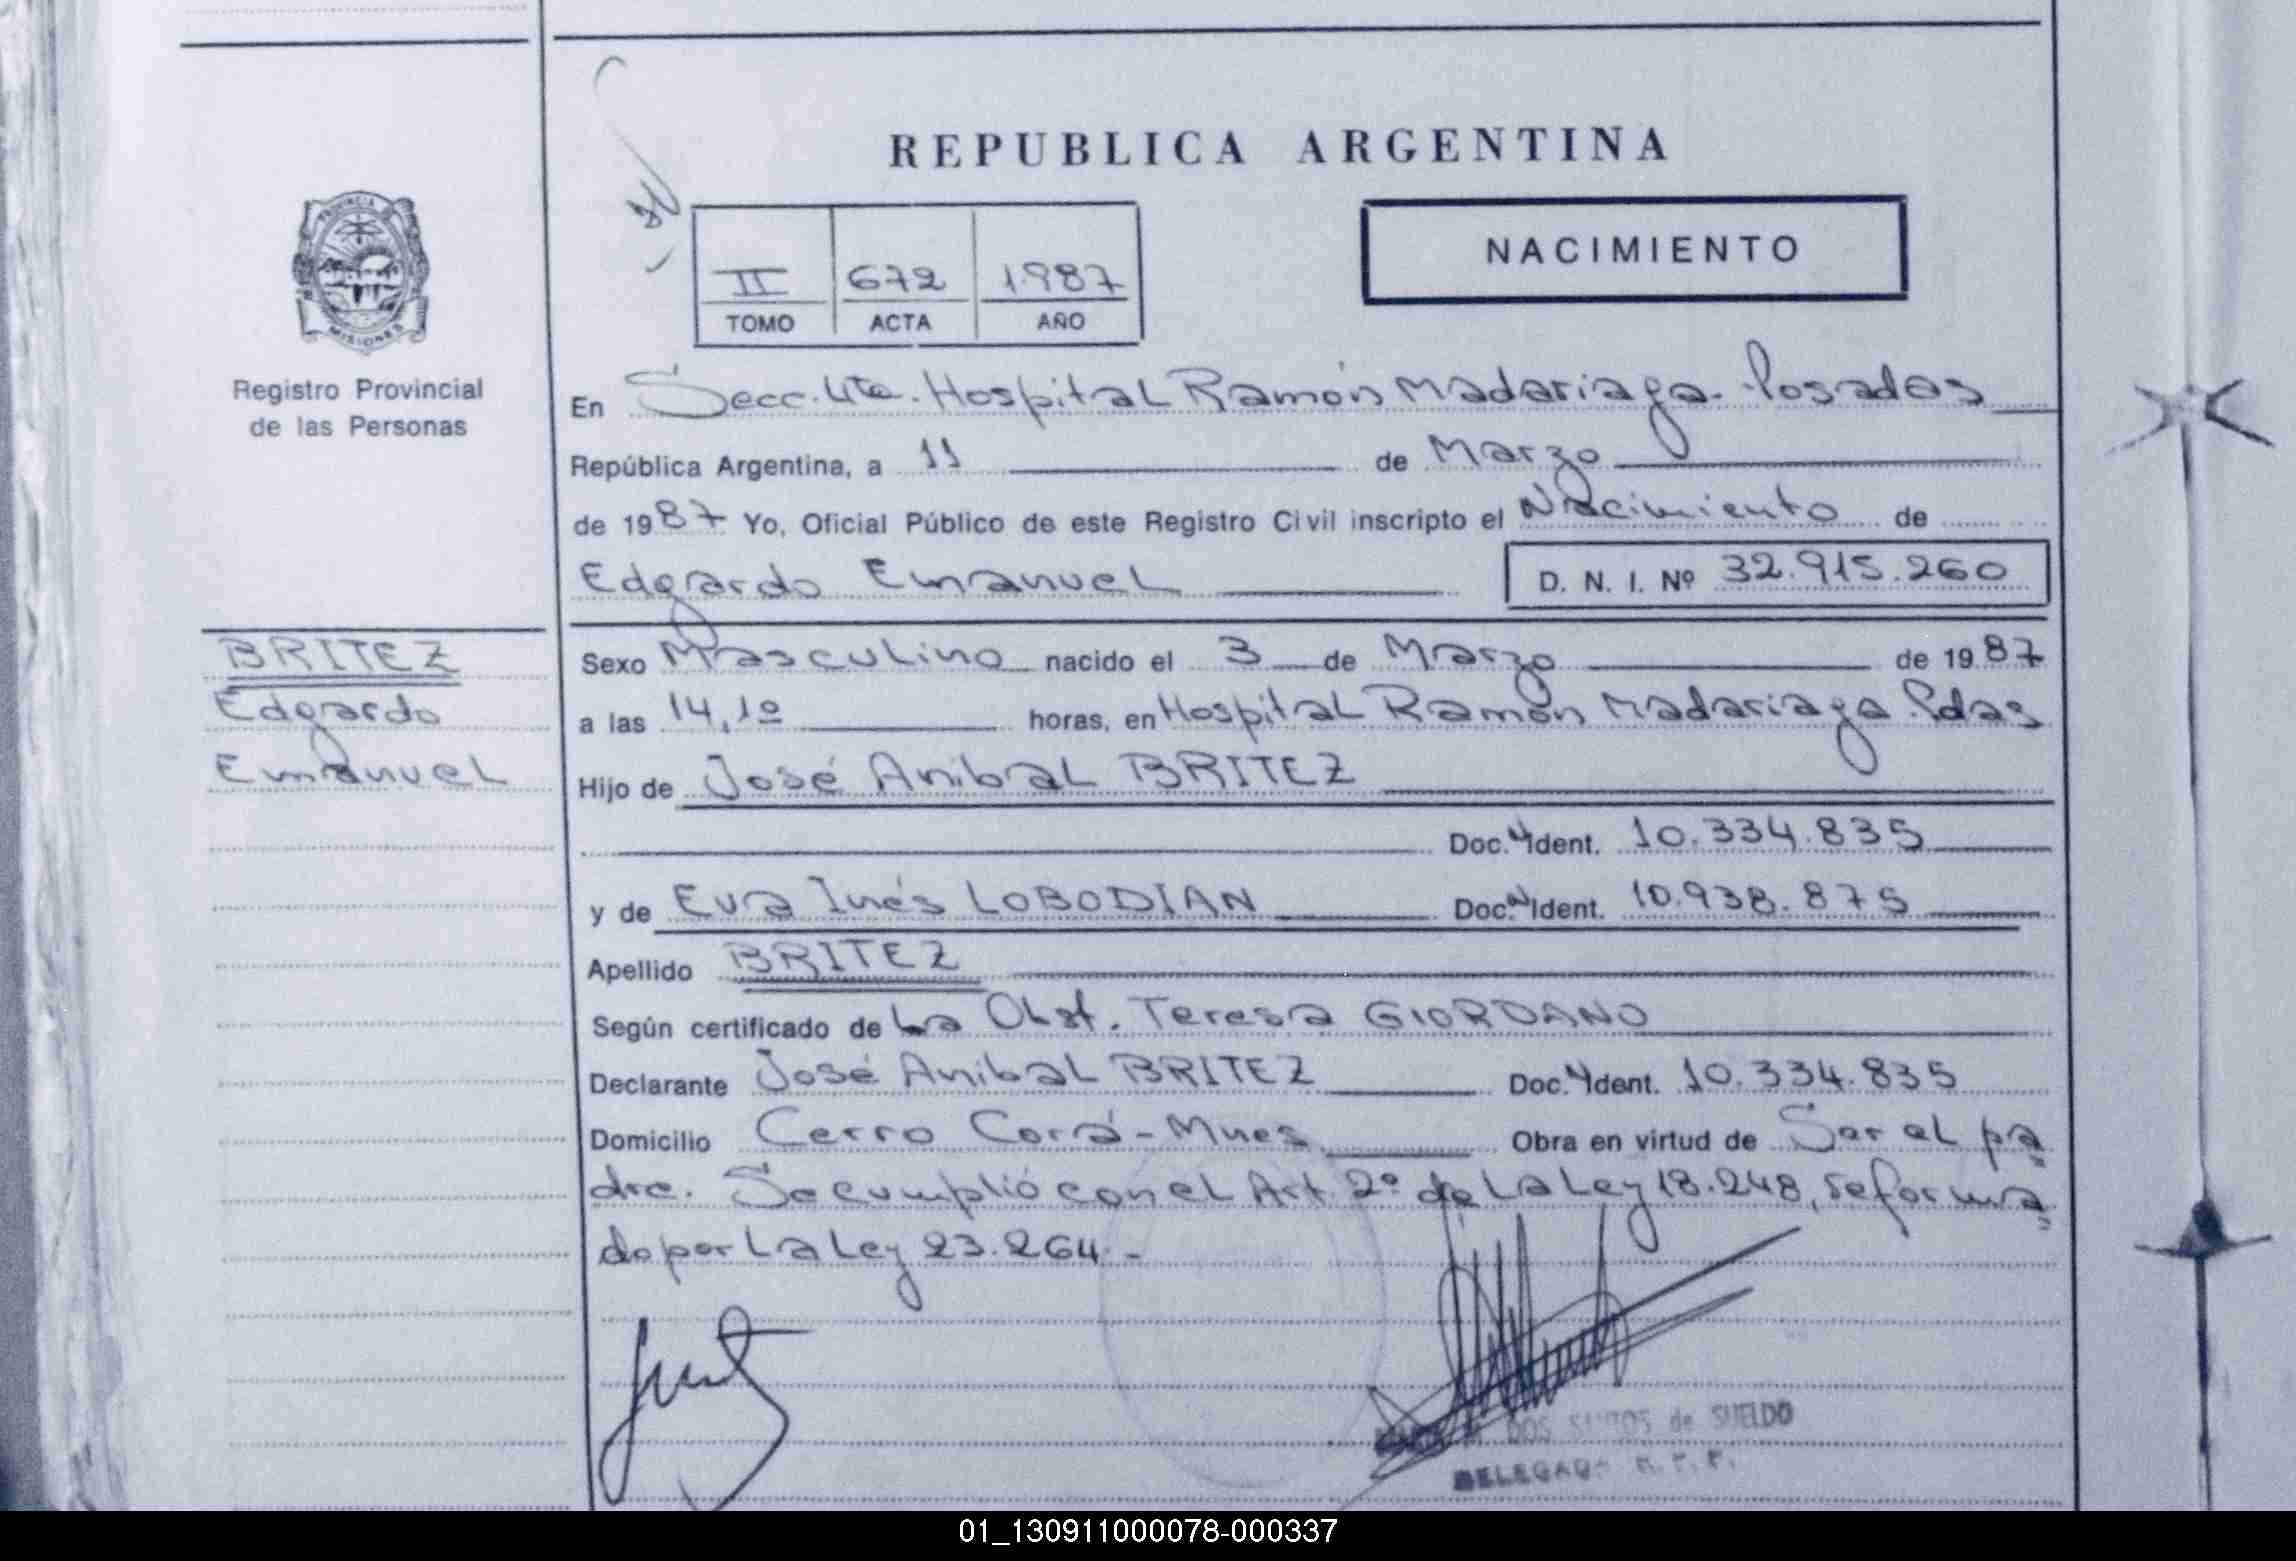 REPUBLICA ARGENTINA
PROVINCIA
MISIONES
Registro Provincial
de las Personas
II 672 1987
TOMO ACTA AÑO
NACIMIENTO
En Secc. 4ta. Hospital Ramón Madariaga. Posadas
República Argentina, a 11 de Marzo
de 1987 Yo, Oficial Público de este Registro Civil inscripto el Nacimiento de
Edgardo Emanuel D. N. I. Nº 32.915.260
BRITEZ
Edgardo
Emanuel
Sexo Masculino nacido el 3 de Marzo de 1987
a las 14,10 horas, en Hospital Ramón Madariaga Pdas
Hijo de José Anibal BRITEZ
Doc. Ident. 10.334.835
y de Eva Inés LOBODIAN Doc. Ident. 10.938.875
Apellido BRITEZ
Según certificado de La Obst. Teresa GIORDANO
Declarante José Anibal BRITEZ Doc. Ident. 10.334.835
Domicilio Cerro Corá - Mnes Obra en virtud de Ser el pa
dre. Se cumplió con el Art. 2º de La Ley 18.248, reforma
do por La Ley 23.264.-
DOS SANTOS de SUELDO
DELEGADA R. P. P.
01_130911000078-000337